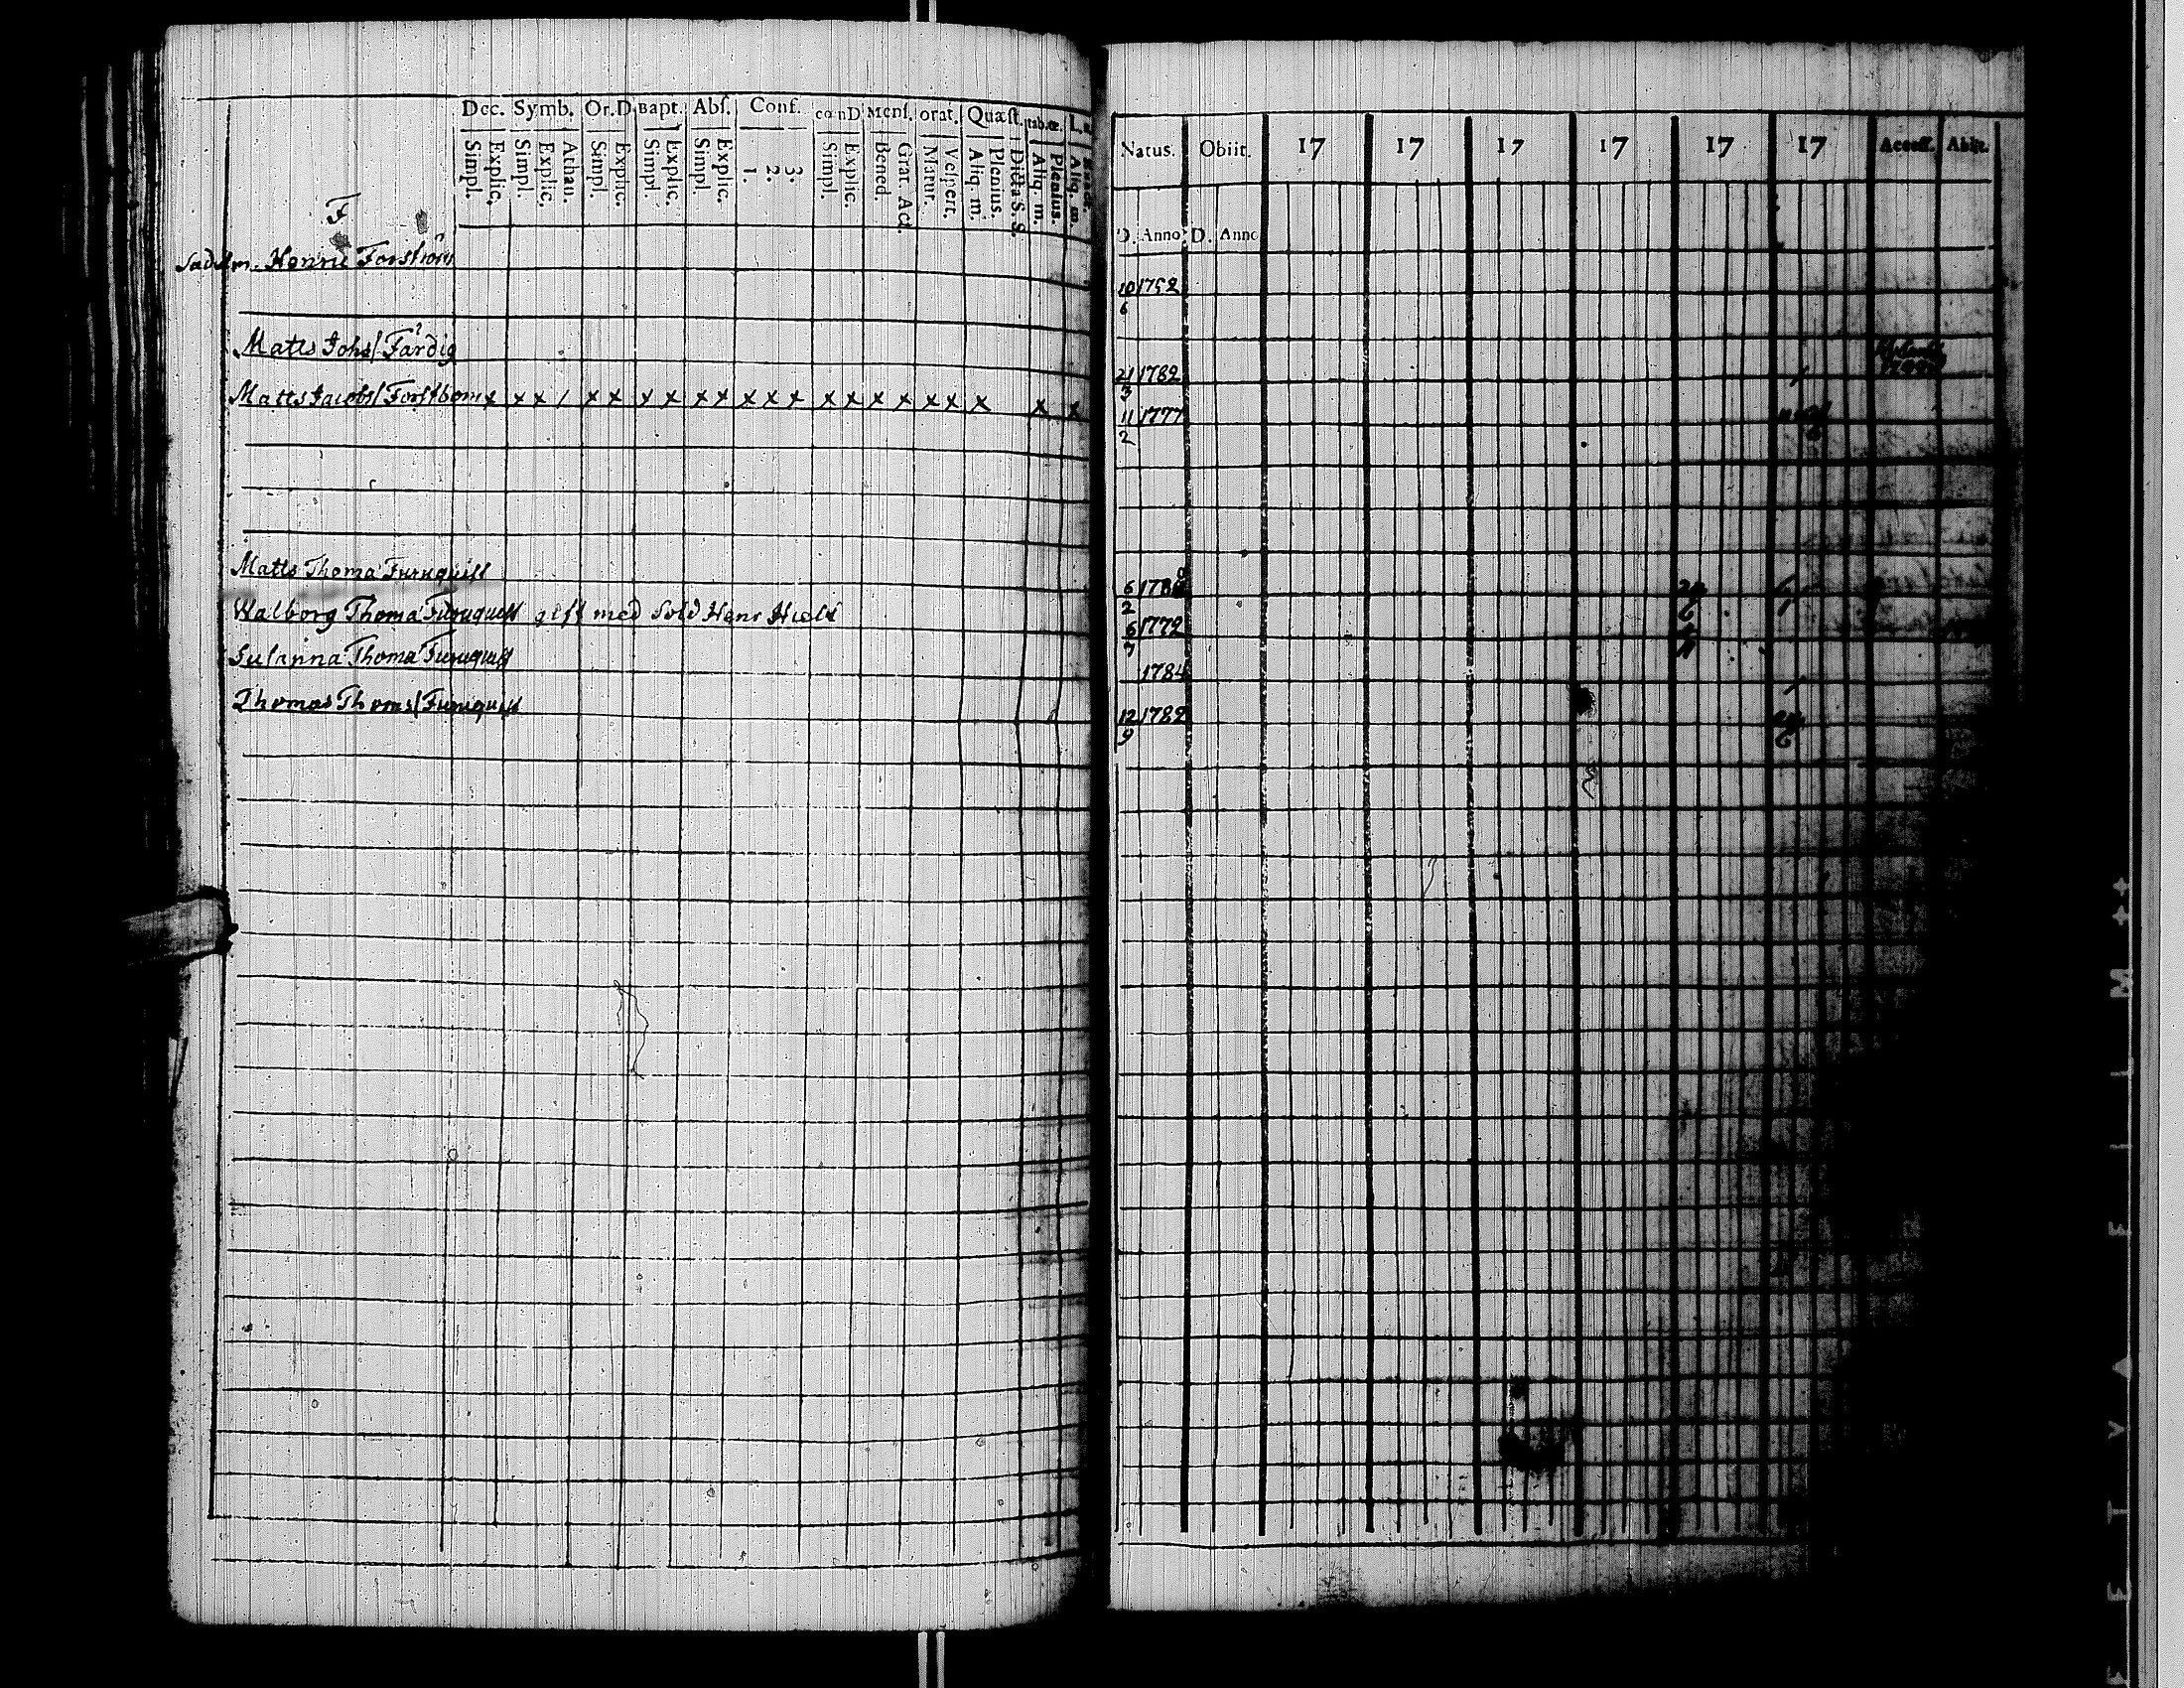 Dec. Symb. Or.D Bapt. Abſ. Conf. conD Menſ. orat. Quæſt. tab.œ.
Simpl. Explic. Simpl. Explic. Athan. Simpl. Explic. Simpl. Explic. Simpl Explic. 1. 2. 3. Simpl. Explic. Bened. Grat. Act. Matut. Veſpert. Aliq. m. Plenius. Dicta S. S. Aliq. m. Plenius. Aliq. m.
Natus. Obiit. 17 17 17 17 17 17 Acceſſ. Abiit.
D. Anno D. Anno
F
Sadelm. Henric Forström
10 1752
6
Matts Johs/ Färdig
21 1782
3
Matts Jacobs/ Forstbom x x x / x x x x x x x x x x x x x x x x x x
11 1777
2
Matts Thoma Furuquist
6
2
Walborg Thoma Furuquist gift med Sold Henr Hield
6 1772
7
Susanna Thoma Furuquist
1784
Thomas Thoms/ Furuquist
12 1782
9